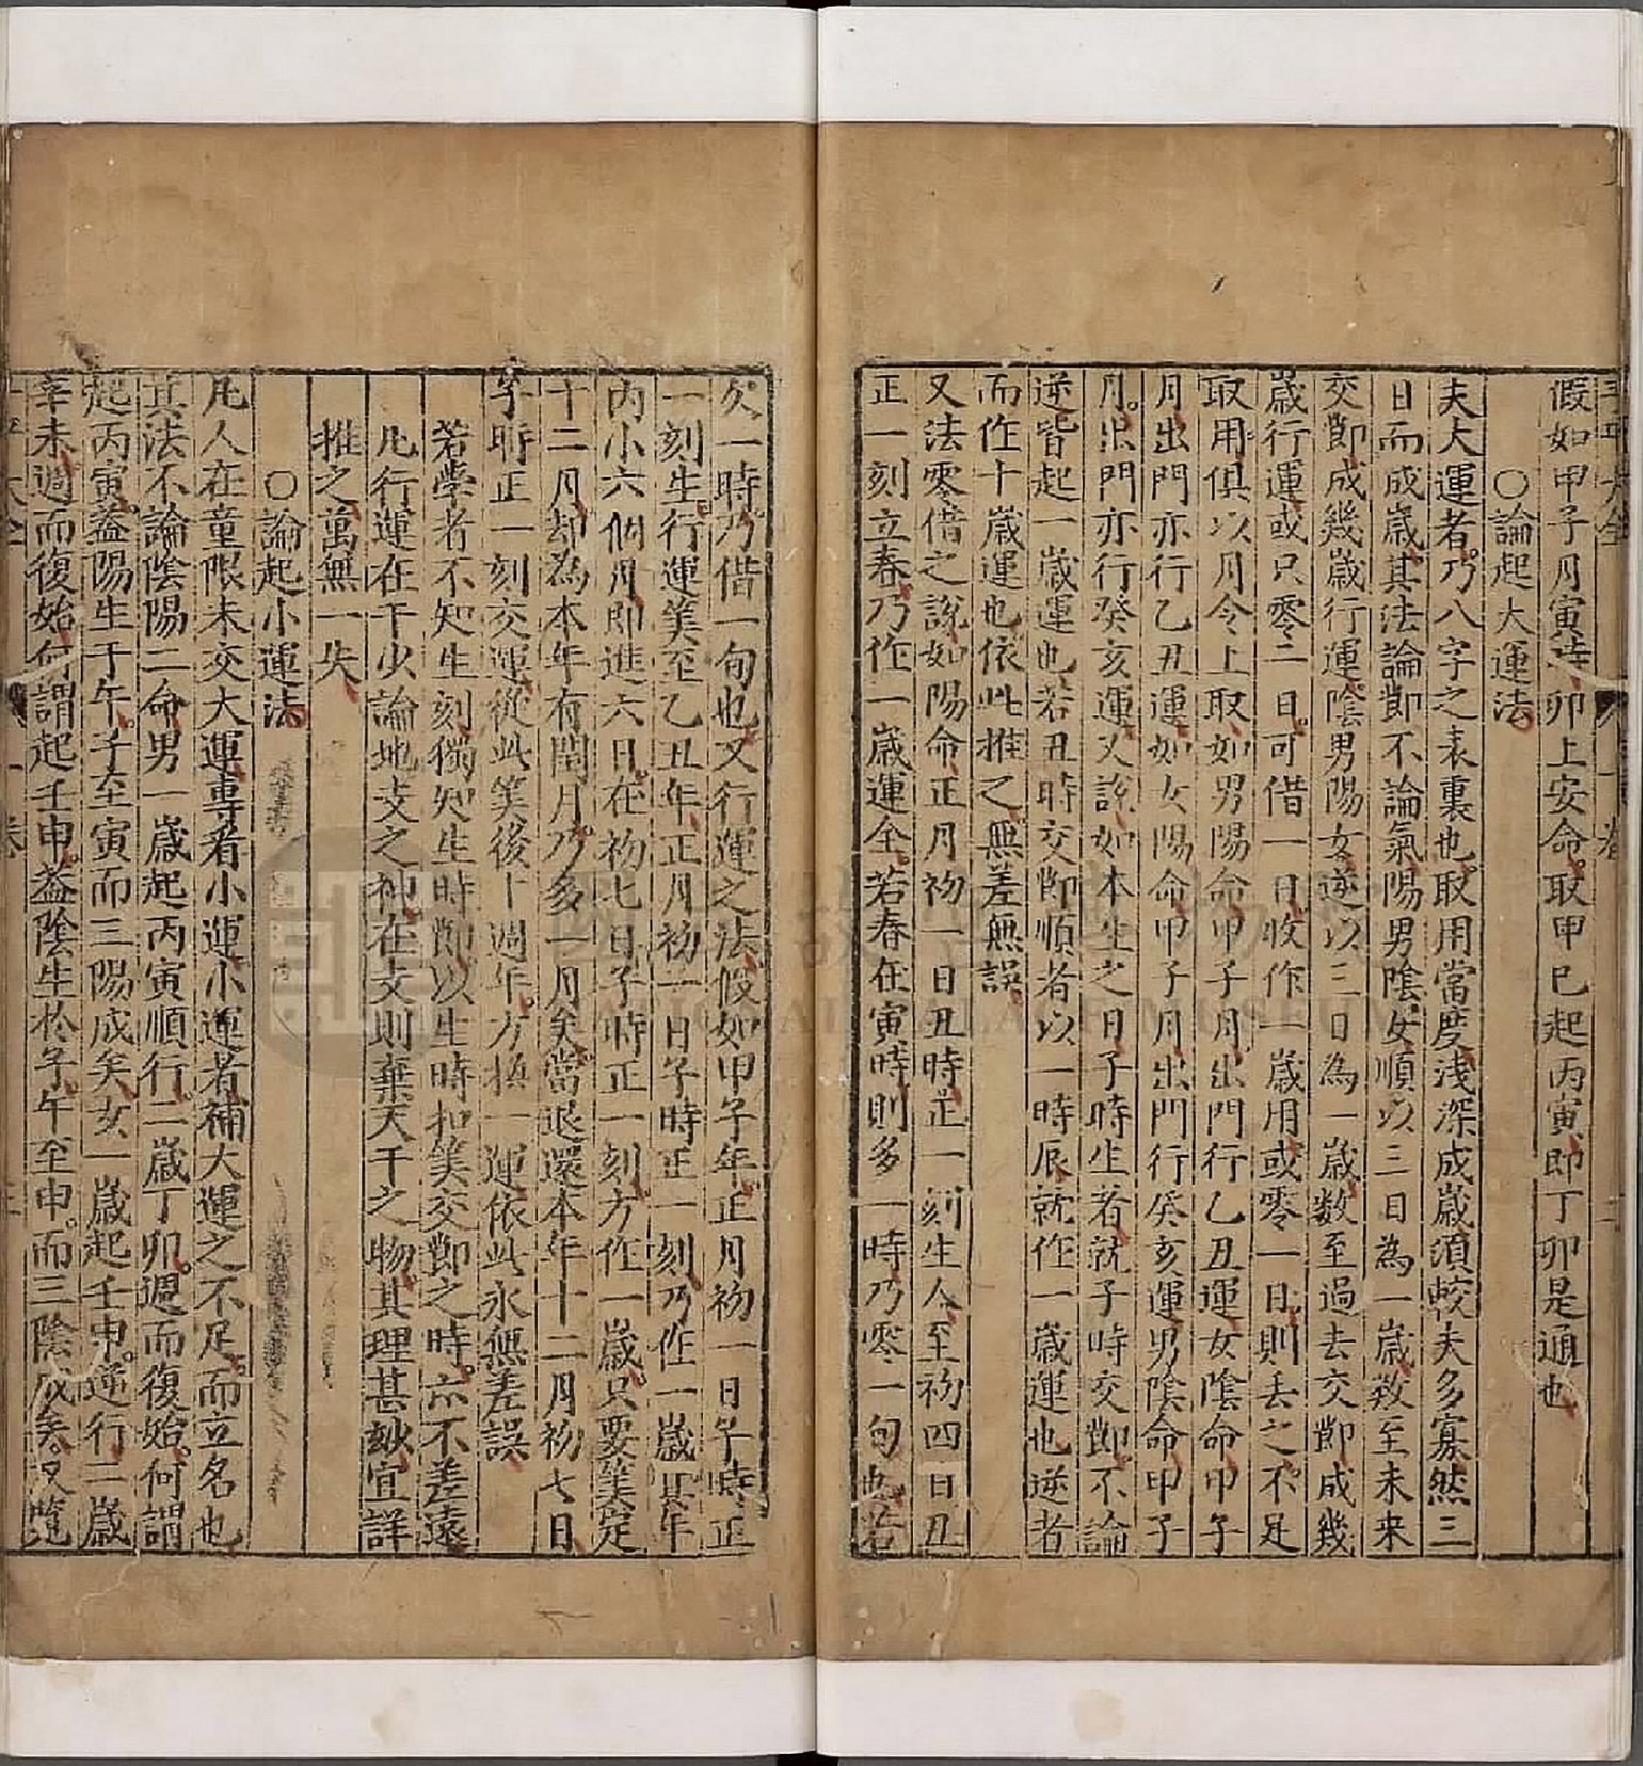 假如甲子月寅時卯上安命取甲己起丙寅即丁卯是通也
○論起大運法
夫大運者乃八字之表裏也取用當度浅深成歲須較夫多寡然三
日而成歲其法論節不論氣陽男陰女順以三日為一歲数至未来
交節成幾歲行運陰男陽女逆以三日為一歲数至過去交節成幾
歲行運或只零二日可借一日收作一歲用或零一日則丢之不足
取用俱以月令上取如男陽命甲子月出門行乙丑運女陰命甲子
月出門亦行乙丑運如女陽命甲子月出門行癸亥運男陰命甲子
月出門亦行癸亥運又說如本生之日子時生者就子時交節不論
逆皆起一歲運也若丑時交節順者以一時辰就作一歲運也逆者
而作十歲運也依此推之無差無誤
又法零借之說如陽命正月初一日丑時正一刻生人至初四日丑
正一刻立春乃作一歲運全若春在寅時則多一時乃零一旬也若
欠一時乃借一旬也又行運之法假如甲子年正月初一日子時正
一刻生行運筭至乙丑年正月初一日子時正一刻乃作一歲正年
内小六個月即進六日在初七日子時正一刻方作一歲只要筭足
十二月却為本年有閏月乃多一月矣當退還本年十二月初七日
子時正一刻交運從此筭後十週年方換一運依此永無差誤
若學者不知生刻獨知生時節以生時扣筭交節之時亦不差遠
凡行運在干少論地支之神在支則棄天干之物其理甚妙宜詳
推之萬無一失
○論起小運法
凡人在童限未交大運專看小運小運者補大運之不足而立名也
其法不論陰陽二命男一歲起丙寅順行二歲丁卯週而復始何謂
起丙寅葢陽生于午子至寅而三陽成矣女一歲起壬申逆行二歲
辛未週而復始何謂起壬申葢陰生於子午至申而三陰成矣又覽